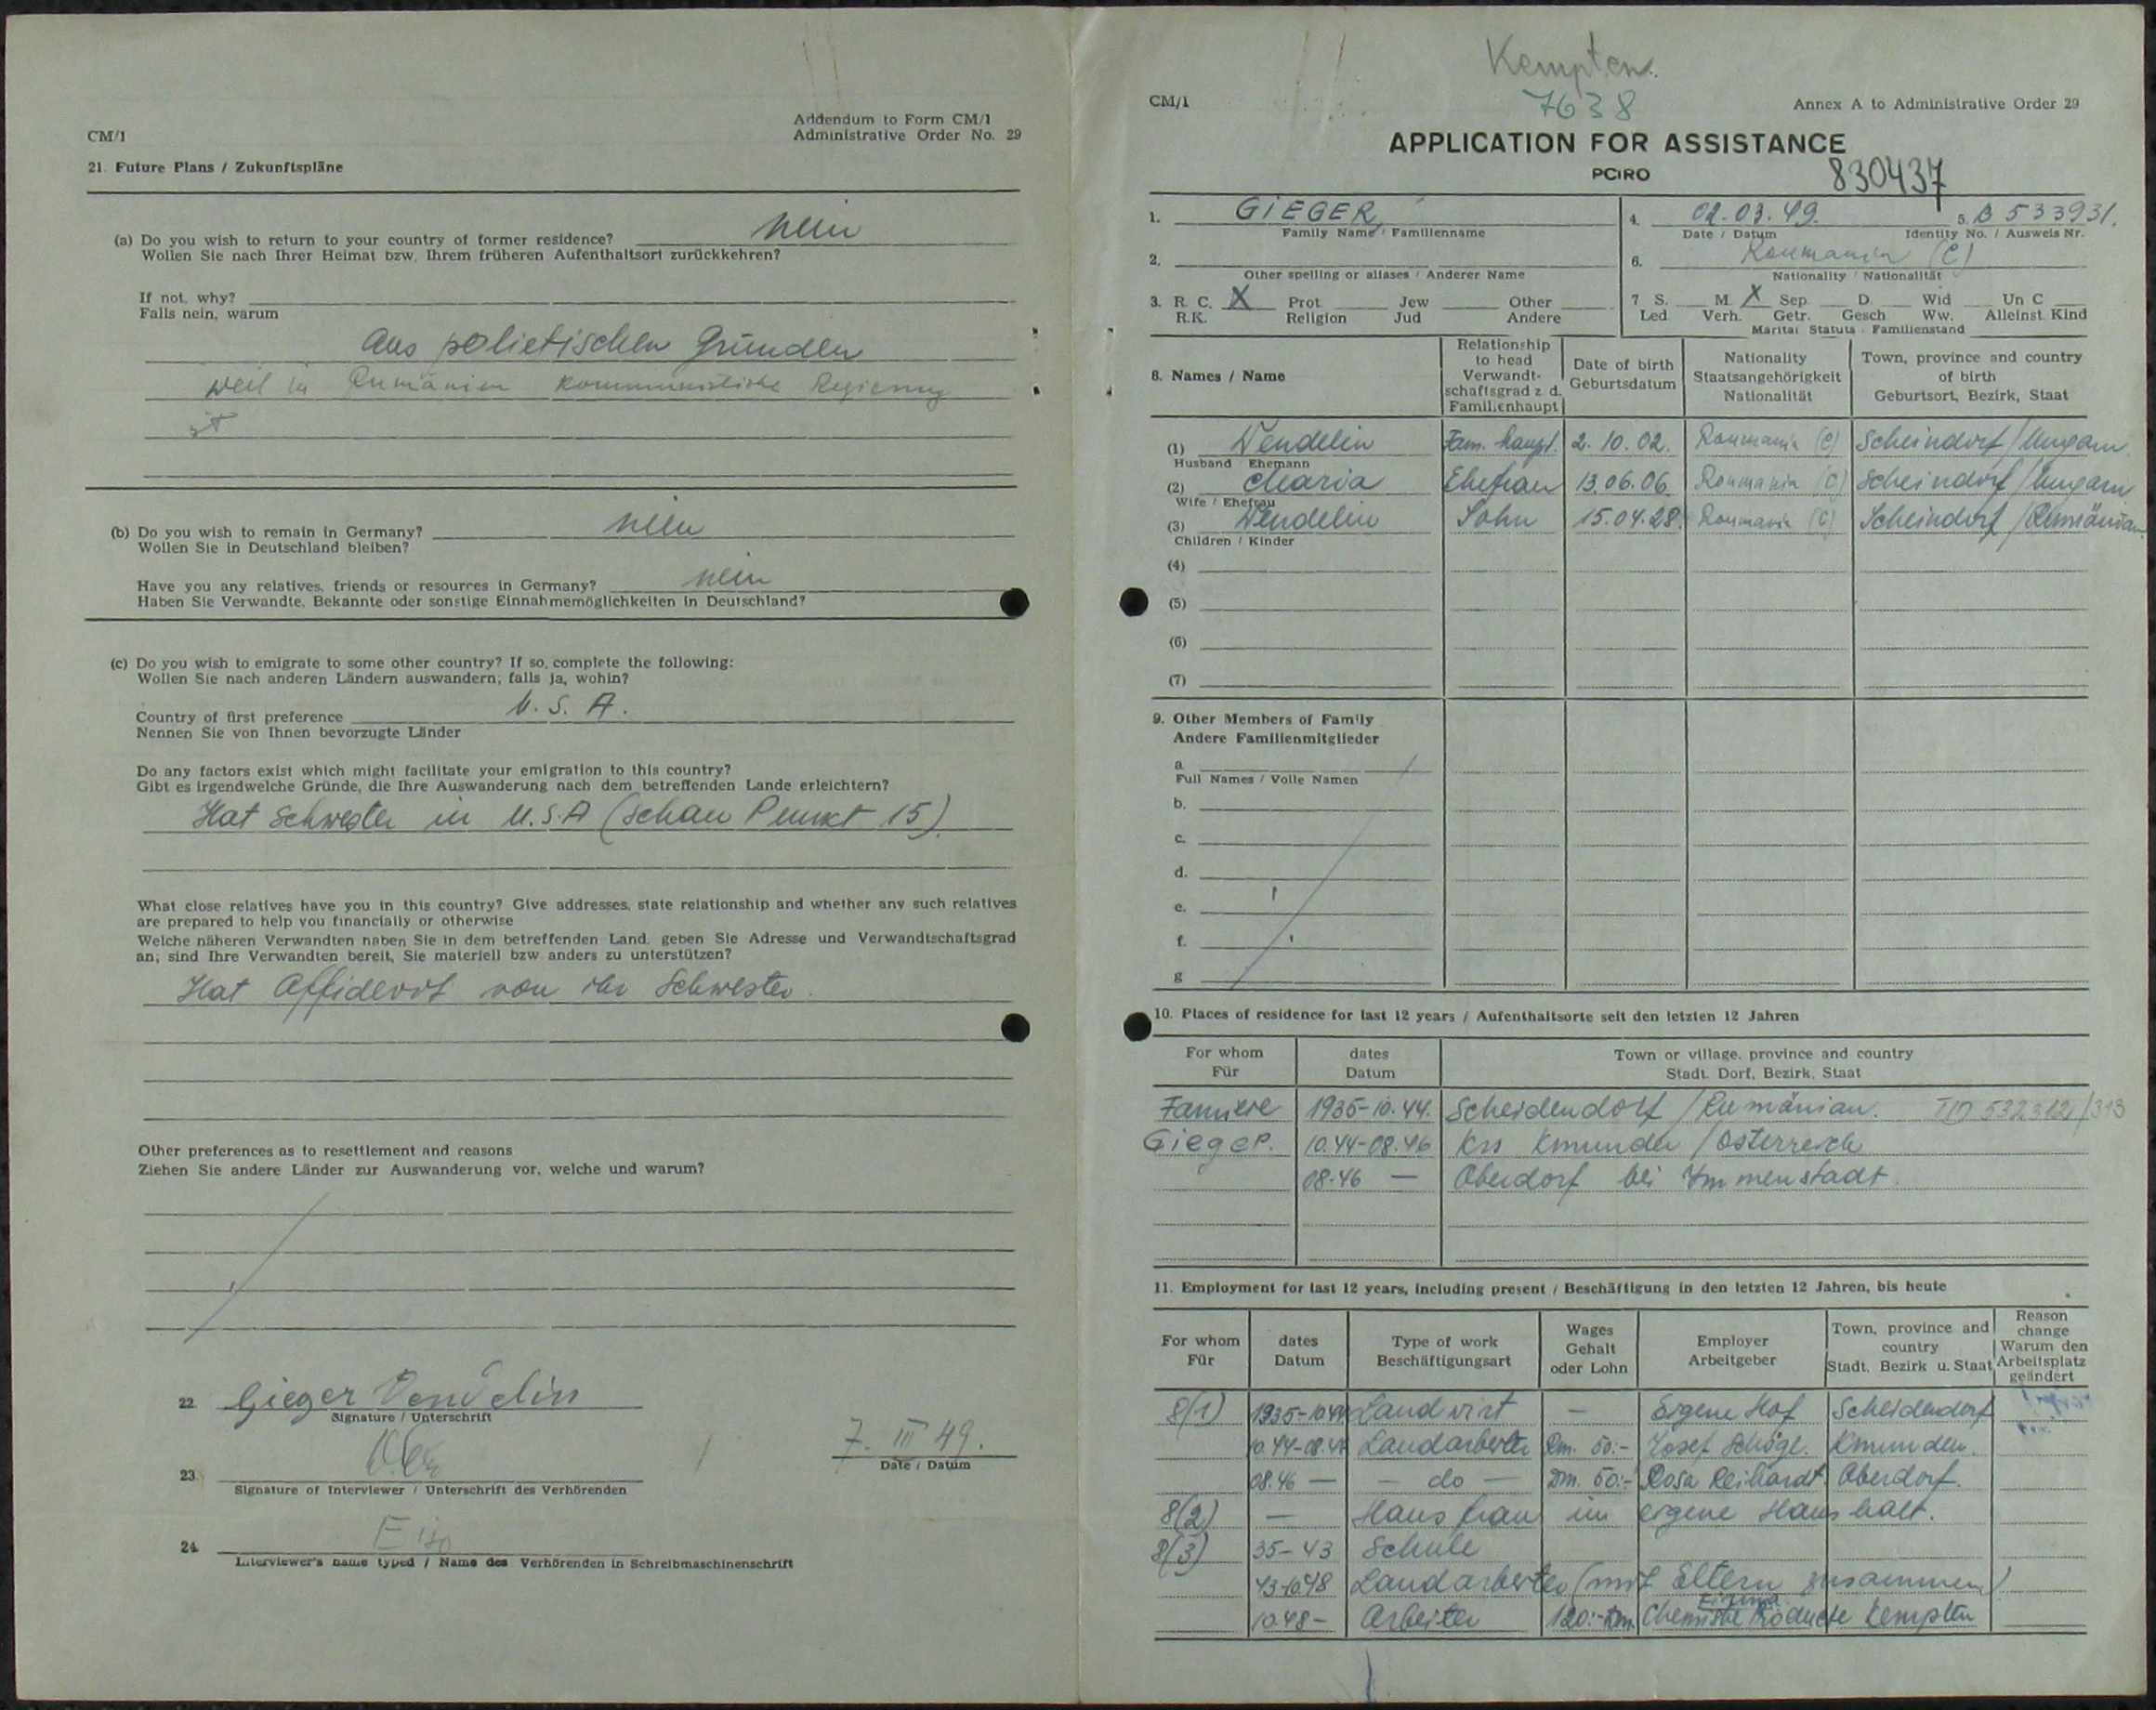 CM/1
Addendum to Form CM/1
Administrative Order No. 29
21. Future Plans / Zukunftspläne
(a) Do you wish to return to your country of former residence? nein
Wollen Sie nach Ihrer Heimat bzw. Ihrem früheren Aufenthaltsort zurückkehren?
If not, why?
Falls nein, warum
Aus polietischen Gründen
weil in Rumänien kommunistische Regierung
ist
(b) Do you wish to remain in Germany? nein
Wollen Sie in Deutschland bleiben?
Have you any relatives, friends or resources in Germany? nein
Haben Sie Verwandte, Bekannte oder sonstige Einnahmemöglichkeiten in Deutschland?
(c) Do you wish to emigrate to some other country? If so, complete the following:
Wollen Sie nach anderen Ländern auswandern; falls ja, wohin?
Country of first preference U. S. A.
Nennen Sie von Ihnen bevorzugte Länder
Do any factors exist which might facilitate your emigration to this country?
Gibt es irgendwelche Gründe, die Ihre Auswanderung nach dem betreffenden Lande erleichtern?
Hat Schwester in U.S.A (schau Punkt 15)
What close relatives have you in this country? Give addresses, state relationship and whether any such relatives
are prepared to help you financially or otherwise
Welche näheren Verwandten haben Sie in dem betreffenden Land, geben Sie Adresse und Verwandtschaftsgrad
an; sind Ihre Verwandten bereit, Sie materiell bzw anders zu unterstützen?
Hat Affidevit von ihr Schwester.
Other preferences as to resettlement and reasons
Ziehen Sie andere Länder zur Auswanderung vor, welche und warum?
22. Gieger Vendelin
Signature / Unterschrift
7. III 49.
Date / Datum
23.
Signature of Interviewer / Unterschrift des Verhörenden
24.
Interviewer's name typed / Name des Verhörenden in Schreibmaschinenschrift
Kempten.
CM/1
7638
Annex A to Administrative Order 29
APPLICATION FOR ASSISTANCE
PCIRO
830437
1. GIEGER,
Family Name / Familienname
4. 02.03.49. 5. B 533931.
Date / Datum Identity No. / Ausweis Nr.
2.
Other spelling or aliases / Anderer Name
6. Roumania (C)
Nationality / Nationalität
3. R. C. X Prot. Jew Other
R.K. Religion Jud Andere
7. S. M. X Sep. D. Wid Un C
Led. Verh. Getr. Gesch Ww. Alleinst. Kind
Marital Statuts - Familienstand
8. Names / Name
Relationship to head Verwandt-schaftsgrad z. d. Familienhaupt
Date of birth Geburtsdatum
Nationality Staatsangehörigkeit Nationalität
Town, province and country of birth Geburtsort, Bezirk, Staat
(1) Wendelin Fam. haupt. 2. 10. 02. Roumania (C) Scheindorf/Ungarn
Husband Ehemann
(2) Maria Ehefrau 13.06.06. Roumania (C) Scheindorf/Ungarn
Wife / Ehefrau
(3) Wendelin Sohn 15.04.28. Roumania (C) Scheindorf/Rumänian
Children / Kinder
(4)
(5)
(6)
(7)
9. Other Members of Family
Andere Familienmitglieder
a.
Full Names / Volle Namen
b.
c.
d.
e.
f.
g
10. Places of residence for last 12 years / Aufenthaltsorte seit den letzten 12 Jahren
For whom dates Town or village, province and country
Für Datum Stadt. Dorf, Bezirk, Staat
Familie 1935-10.44. Scheidendorf/Rumänian. 532312/313
Gieger. 10.44-08.46 Krs Kmunden/Österreich
08.46 — Oberdorf bei Immenstadt.
11. Employment for last 12 years, including present / Beschäftigung in den letzten 12 Jahren, bis heute
For whom Für
dates Datum
Type of work Beschäftigungsart
Wages Gehalt oder Lohn
Employer Arbeitgeber
Town, province and country Stadt. Bezirk u. Staat
Reason change Warum den Arbeitsplatz geändert
8(1) 1935-10.44 Landwirt — Eigene Hof Scheidendorf
10.44-08.46 Landarbeiter Rm. 50.- Josef Schögl. Kmunden.
08.46 — — do — Dm. 50.- Rosa Reihardt. Oberdorf.
8(2) — Hausfrau im eigene Haushalt.
8(3) 35-43 Schule
43-10.48 Landarbeiter (mit Eltern zusammen)
Firma
10.48- Arbeiter 120.- Dm. Chemische Producte Kempten